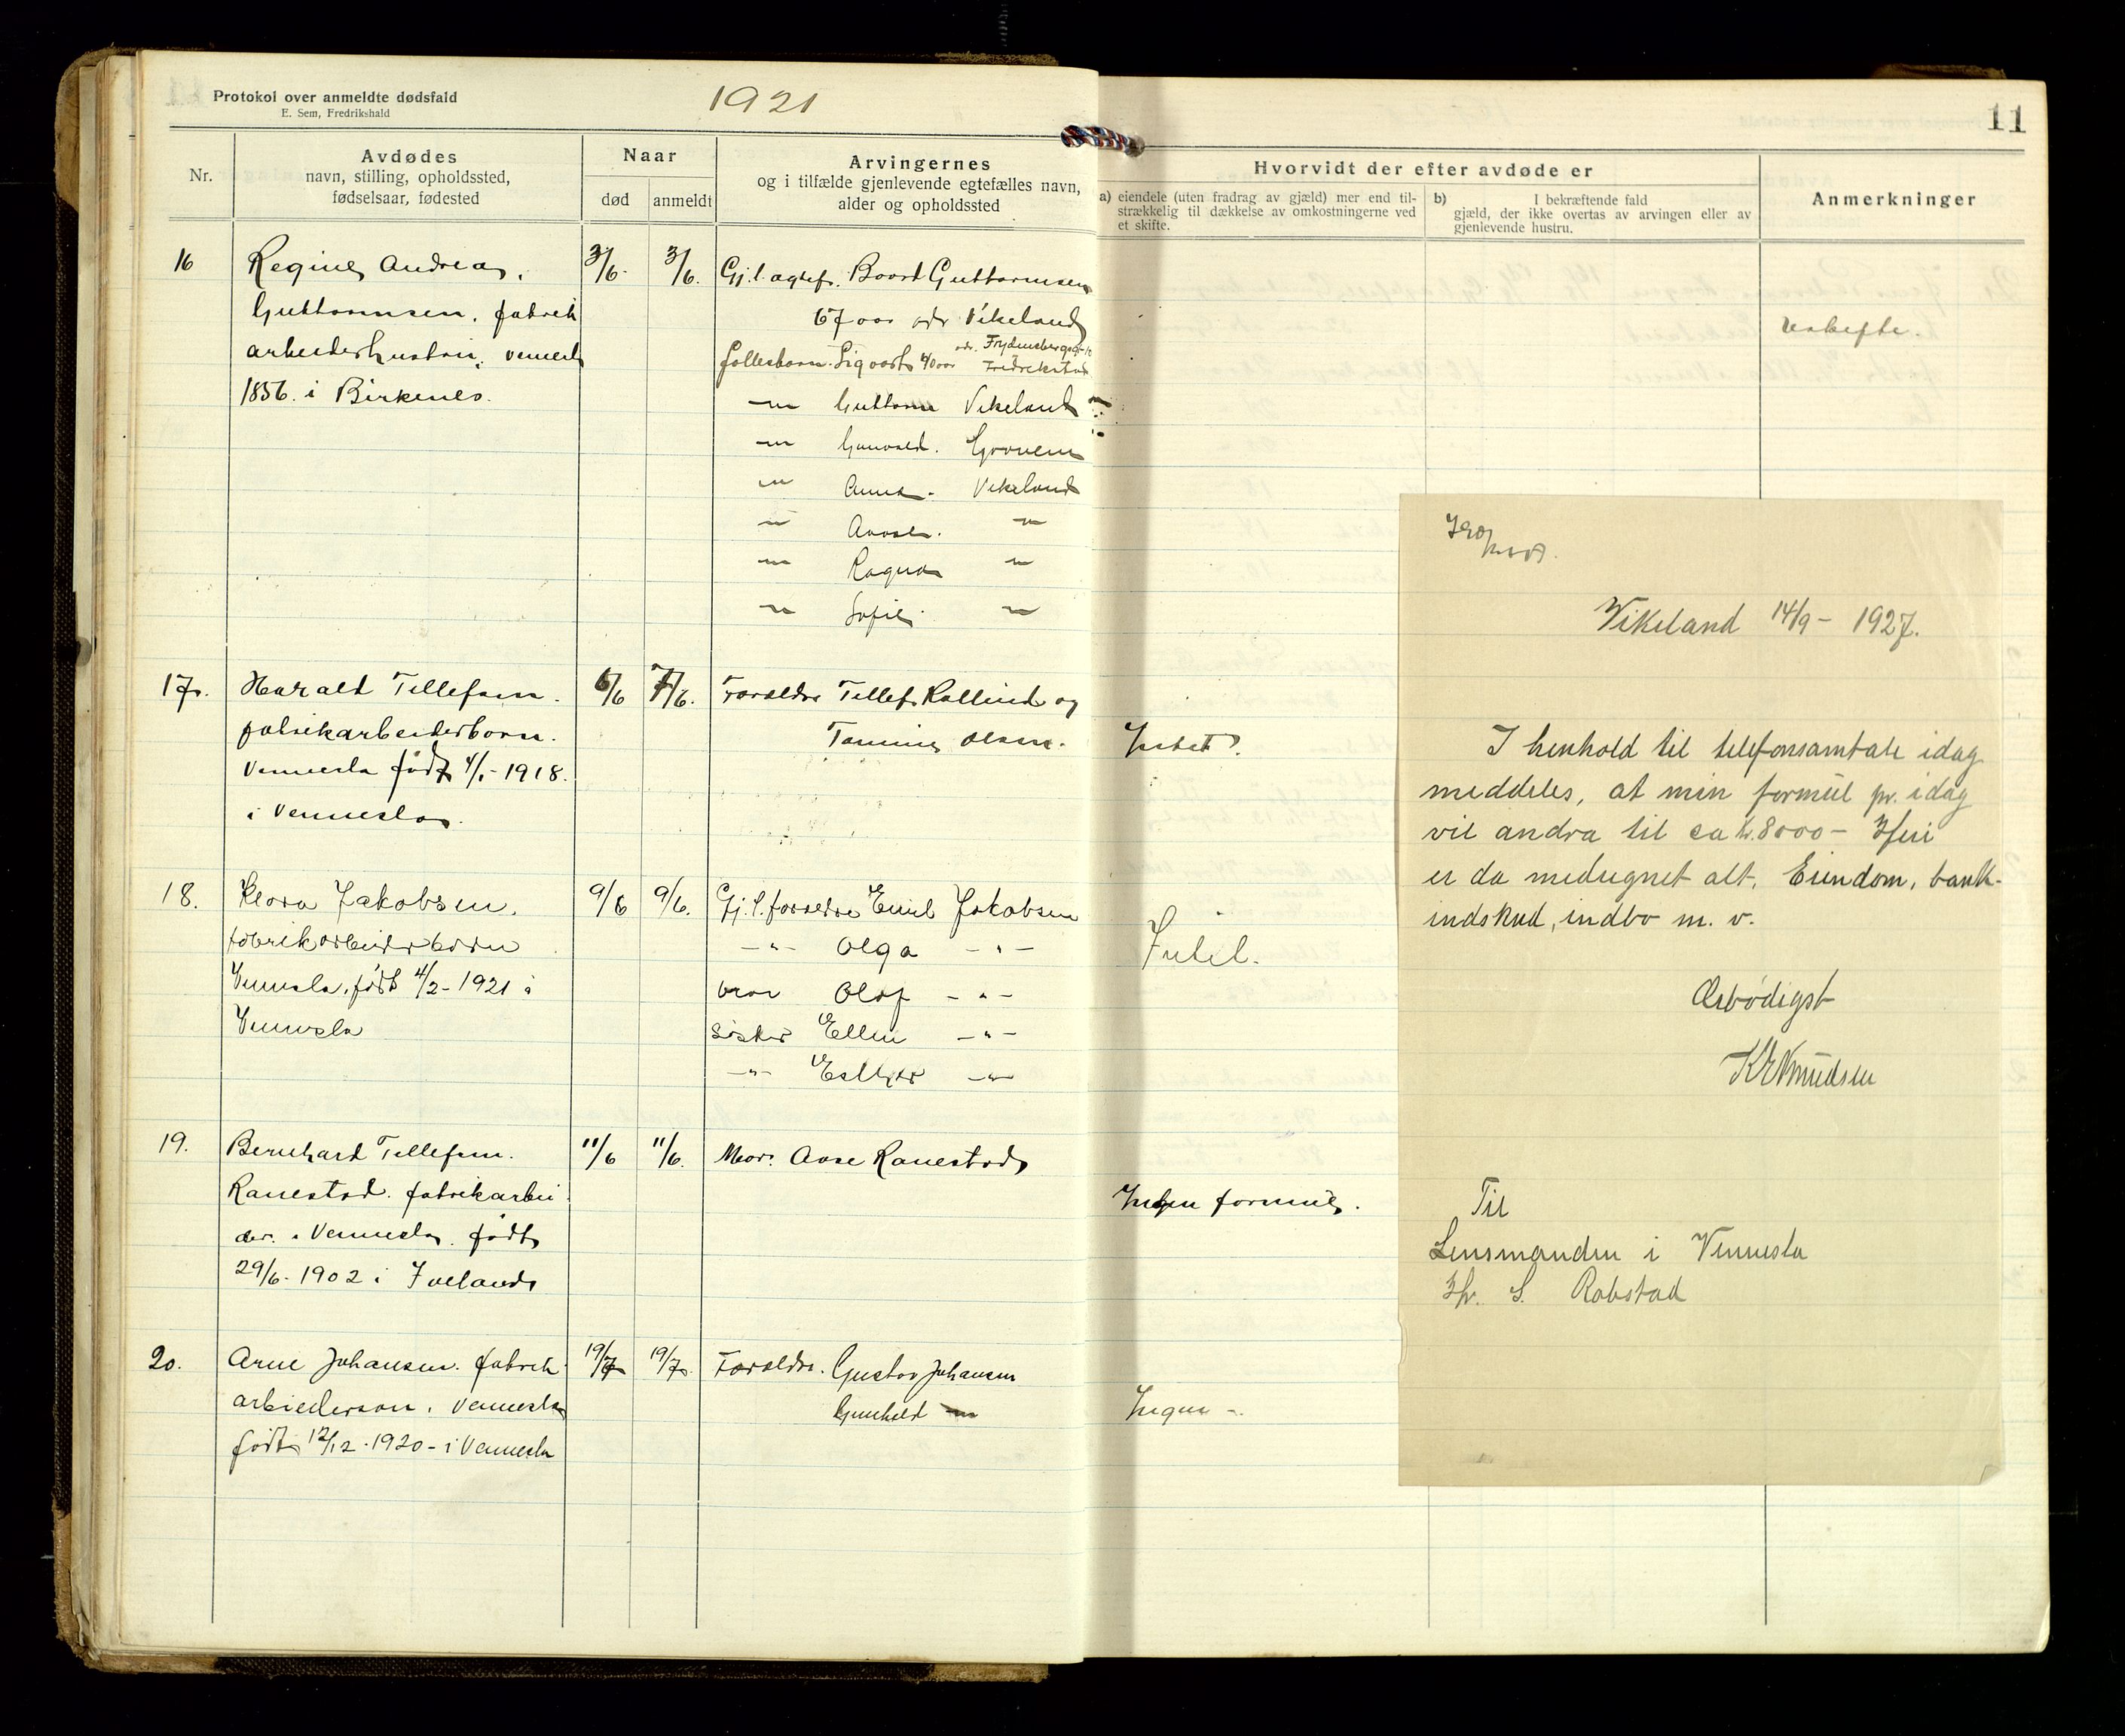 Protokol over anmeldte dødsfald
E. Sem, Fredrikshald
1921
11
Nr.
Avdødes
navn, stilling, opholdssted,
fødselsaar, fødested
Naar
død
anmeldt
Arvingernes
og i tilfælde gjenlevende egtefælles navn,
alder og opholdssted
Hvorvidt der efter avdøde er
a) eiendele (uten fradrag av gjæld) mer end til-
strækkelig til dækkelse av omkostningerne ved
et skifte.
b) I bekræftende fald
gjæld, der ikke overtas av arvingen eller av
gjenlevende hustru.
Anmerkninger
16
Regine Andrea
Guttormsen. fabrik
arbeiderhustru, Vennesla
1856. i Birkenes.
3/6.
3/6.
Gj.l. Baard Guttormsen
67 aar adr Vikeland
fællesbarn. Sigvart 40 aar adr. Frydensbergsgt
Fredrikstad
-"- Guttorm Vikeland
-"- Gunvald.
-"- Anna. Vikeland
-"- Aasel. -"-
-"- Ragna -"-
-"- Sofie. -"-
17.
Harald Tellefsen.
fabrikarbeiderbarn.
Vennesla født 4/1-1918.
i Vennesla.
6/6
7/6.
Forældre Tellef Kallevik og
Tomine Olsen.
Intet.
18.
Klara Jakobsen.
fabrikarbeiderbarn
Vennesla, født 4/2-1921 i
Vennesla
9/6
9/6.
Gj.l. forældre Emil Jakobsen
-"- Olga -"-
bror Olaf -"-
søster Ellen -"-
-"- Esther -"-
Intet.
19.
Bernhard Tellefsen.
Ranestad. fabrikarbei
der. i Vennesla. født
29/6-1902 i Iveland
11/6
11/6.
Mor: Aase Ranestad
Ingen formue.
20.
Arne Johansen. fabrik
arbeiderson. Vennesla
født 12/12-1920- i Vennesla
19/7
19/7.
Forældre. Gustav Johansen
Gunhild -"-
Ingen -.
Vikeland 14/9- 1927.
I henhold til telefonsamtale idag
meddeles, at min formue pr. idag
vil andra til ca kr. 8000- Heri
er da medregnet alt. Eiendom, bank-
indskud, indbo m. v.
Ærbødigst
Knudsen
Til
Lensmanden i Vennesla
Hr. S. Robstad